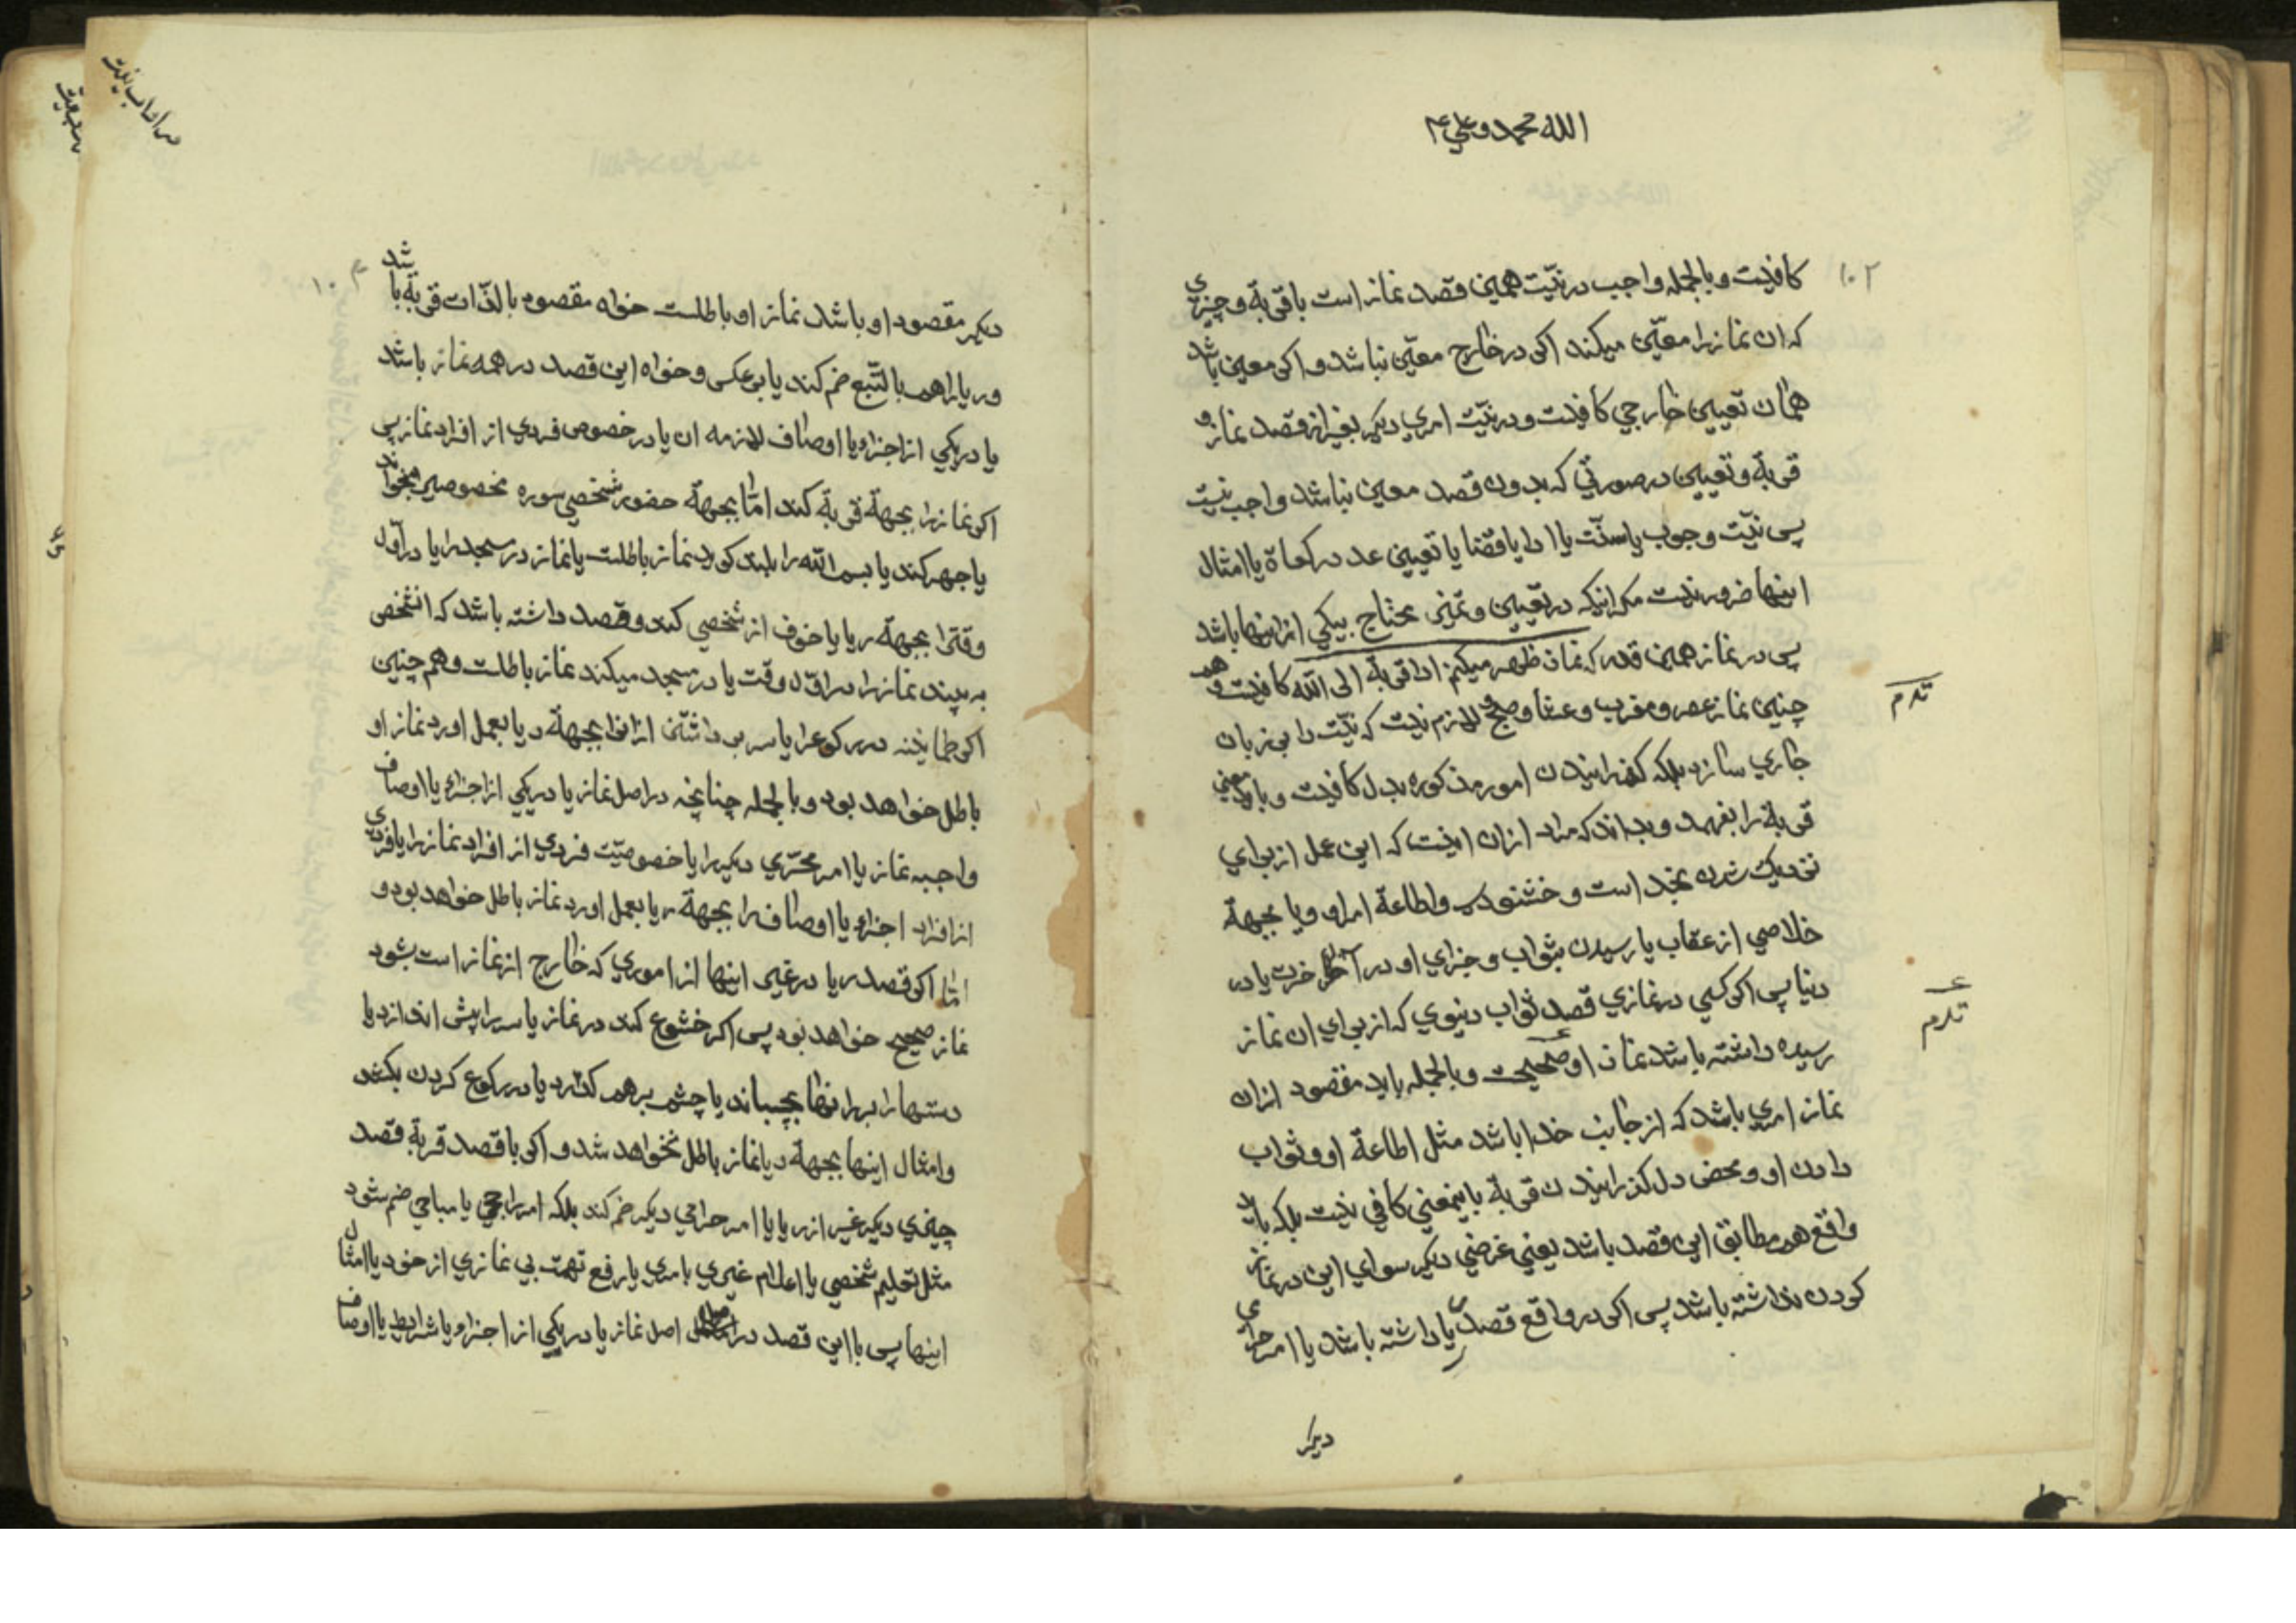 الله محمد و علي ع
۱۰۲
كافيست و بالجمله واجب در نيّت همين قصد نماز است با قربة و چيزي
كه ان نماز را معيّن ميكند اكر در خارج معيّن نباشد و اكر معين باشد
همان تعيين خارجي كافيست و در نيّت امري ديكر بغير از قصد نماز و
قربة و تعيين در صورتي كه بدون قصد معين نباشد واجب نيست
پس نيّت وجوب يا سنّت يا ادا يا قضا يا تعيين عدد ركعاة يا امثال
اينها ضرور نيست مكر اينكه در تعيين و تميز محتاج بيكي از اينها باشد
پس در نماز همين قدر كه نماز ظهر ميكنم ادا قربة الى الله كافيست و هم
چنين نماز عصر و مغرب و عشا و صبح و لازم نيست كه نيّت را بر زبان
جاري سازد بلكه كذرانيدن امور مذكوره بدل كافيست و بايد معني
قربة را بفهمد و بداند كه مراد ازان اينست كه اين عمل از براي
نزديك شدن بخدا است و خشنودي و اطاعة امر او و يا بجهة
خلاصي از عقاب يا رسيدن بثواب و جزاي او در آخرت يا در
دنيا پس اكر كسي در نمازي قصد ثواب دنيوي كه از براي ان نماز
رسيده داشته باشد نماز او صحيحست و بالجمله بايد مقصود ازان
نماز امري باشد كه از جانب خدا باشد مثل اطاعة او و ثواب
دادن او و محض دل كذرانيدن قربة باينمعني كافي نيست بلكه بايد
واقع هم مطابق اين قصد باشد يعني غرضي ديكر سواي اين در نماز
كردن نداشته باشد پس اكر در واقع قصد ريا داشته باشد يا امر حرامي
ديكر
ديكر مقصود او باشد نماز او باطلست خواه مقصود بالذّات قربة باشد
و ريا را هم بالتّبع ضم كند يا بر عكس و خواه اين قصد در همه نماز باشد
يا در يكي از اجزاء يا اوصاف لازمه ان يا در خصوص فردي از افراد نماز پس
اكر نماز را بجهة قربة كند امّا بجهة حضور شخصي سوره مخصوصي بخواند
يا جهر كند يا بسم الله را بلند كويد نماز باطلست يا نماز در مسجد را يا در اول
وقترا بجهة ريا يا خوف از شخصي كند و قصد داشته باشد كه انشخص
به بيند نماز را در اوّل وقت يا در مسجد ميكند نماز باطلست و هم چنين
اكر طمانينه در ركوع را يا سر بر داشتن از انرا بجهة ريا بعمل اورد نماز او
باطل خواهد بود و بالجمله چنانچه در اصل نماز يا در يكي از اجزاء يا اوصاف
واجبه نماز يا امر محرّمي ديكر را يا خصوصيّت فردي از افراد نماز را يا فردي
از افراد اجزاء يا اوصاف را بجهة ريا بعمل اورد نماز باطل خواهد بود و
امّا اكر قصد ريا در غير اينها از اموري كه خارج از نماز است بشود
نماز صحيح خواهد بود پس اكر خشوع كند در نماز يا سر را پيش اندازد يا
دستها را بر رانها بچسباند يا چشم بر هم كذارد يا در ركوع كردن بكشد
و امثال اينها بجهة ريا نماز باطل نخواهد شد و اكر با قصد قربة قصد
چيزي ديكر غير از ريا يا امر حرامي ديكر ضم كند بلكه امر راجحي يا مباحي ضم شود
مثل تعليم شخصي يا اعلام غيري بامري يا رفع تهمت بي نمازي از خود يا امثال
اينها پس با اين قصد در اصل نماز يا در يكي از اجزاء يا شرايط يا اوصاف